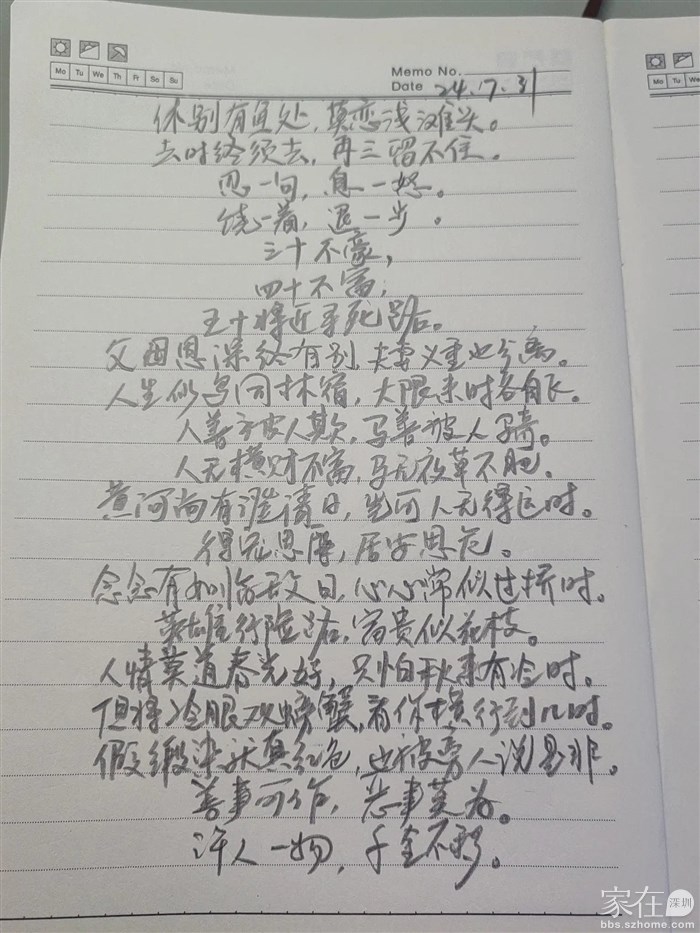 Mo Tu We Th Fr Sa Su
Memo No.
Date 24.7.31
休别有鱼处，莫恋浅滩头。
去时终须去，再三留不住。
忍一句，息一怒。
饶一着，退一步。
三十不豪，
四十不富，
五十将近寻死路。
父母恩深终有别，夫妻义重也分离。
人生似鸟同林宿，大限来时各自飞。
人善被人欺，马善被人骑。
人无横财不富，马无夜草不肥。
黄河尚有澄清日，岂可人无得运时。
得宠思辱，居安思危。
念念有如临敌日，心心常似过桥时。
英雄行险路，富贵似花枝。
人情莫道春光好，只怕秋来有冷时。
但将冷眼观螃蟹，看你横行到几时。
假缎染就真红色，也被旁人说是非。
善事可作，恶事莫为。
许人一物，千金不移。
家在 深圳
bbs.szhome.com